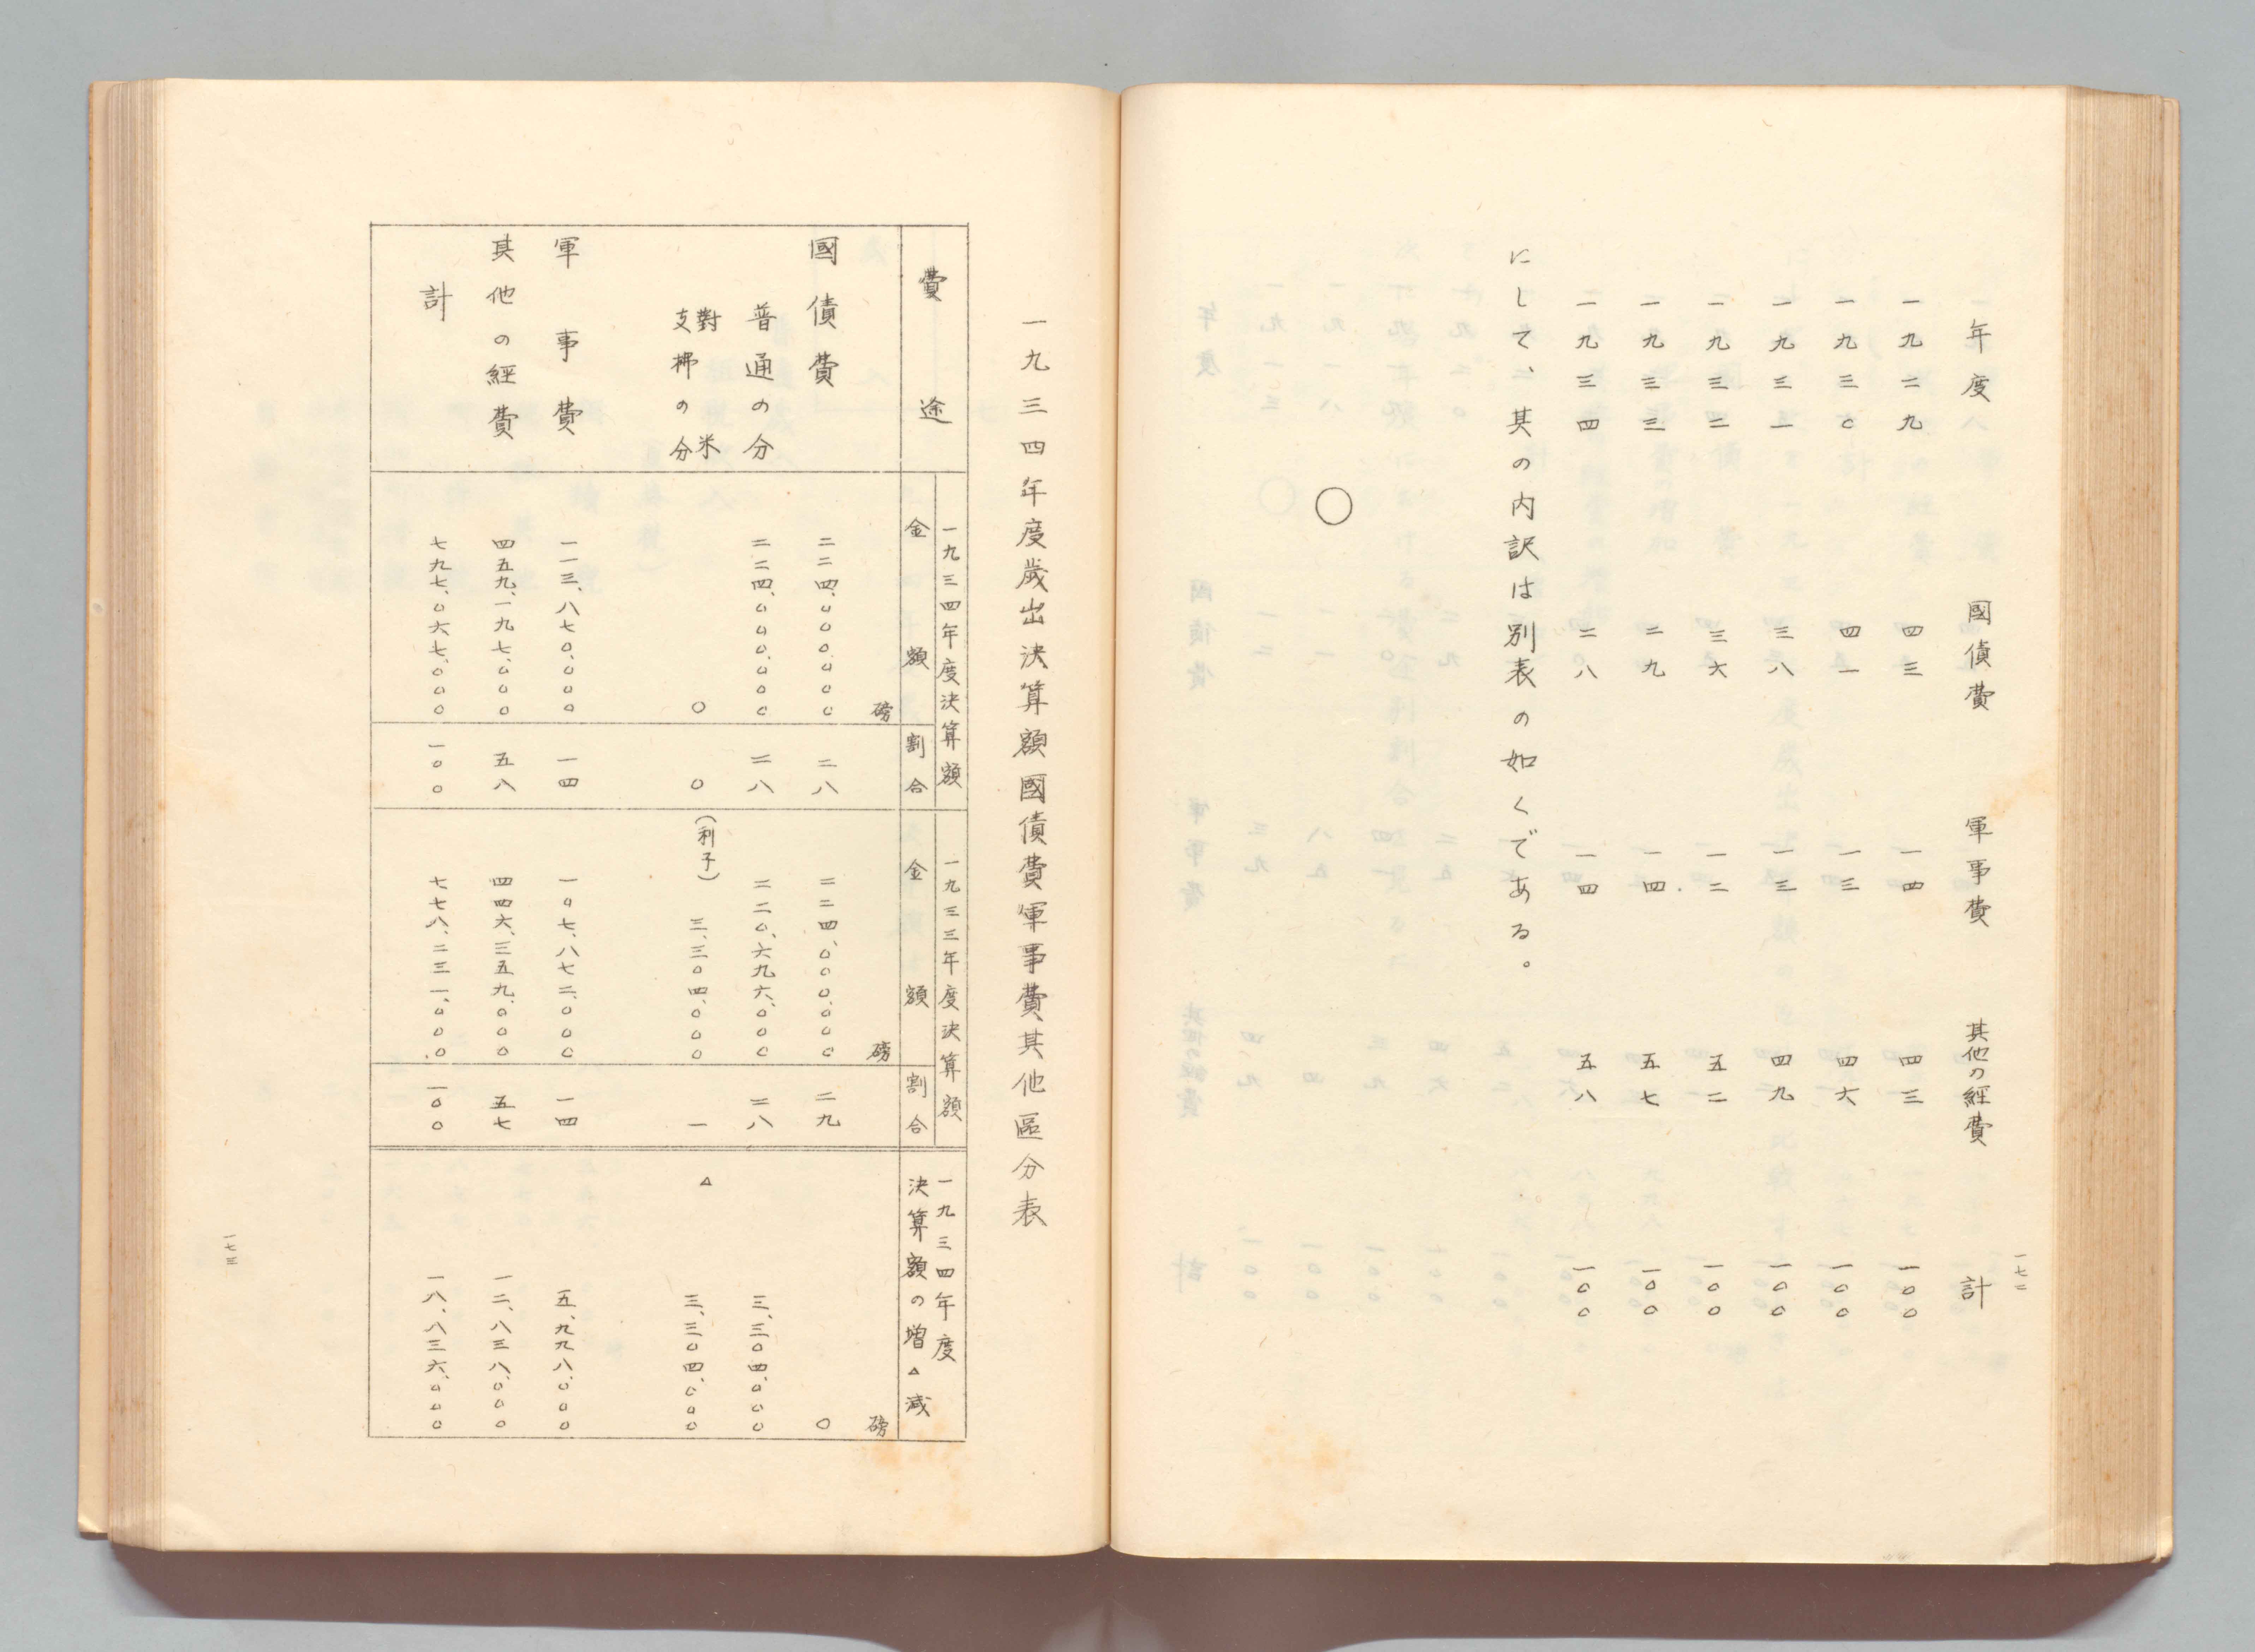 一七二
年度 國債費 軍事費 其他の經費 計
一九二九 四三 一四 四三 一〇〇
一九三〇 四一 一三 四六 一〇〇
一九三一 三八 一三 四九 一〇〇
一九三二 三六 一二 五二 一〇〇
一九三三 二九 一四 五七 一〇〇
一九三四 二八 一四 五八 一〇〇
にして、其の内訳は別表の如くである。
〇
一九三四年度歲出決算額國債費軍事費其他區分表
費途
一九三四年度決算額
金額 割合
一九三三年度決算額
金額 割合
一九三四年度
決算額の増△減
磅 磅 磅
國債費 二二四、〇〇〇、〇〇〇 二八 二二四、〇〇〇、〇〇〇 二九 〇
普通の分 二二四、〇〇〇、〇〇〇 二八 二二〇、六九六、〇〇〇 二八 三、三〇四、〇〇〇
對米
支拂の分 〇 〇 (利子) 三、三〇四、〇〇〇 一 △ 三、三〇四、〇〇〇
軍事費 一一三、八七〇、〇〇〇 一四 一〇七、八七二、〇〇〇 一四 五、九九八、〇〇〇
其他の經費 四五九、一九七、〇〇〇 五八 四四六、三五九、〇〇〇 五七 一二、八三八、〇〇〇
計 七九七、〇六七、〇〇〇 一〇〇 七七八、二三一、〇〇〇 一〇〇 一八、八三六、〇〇〇
一七三